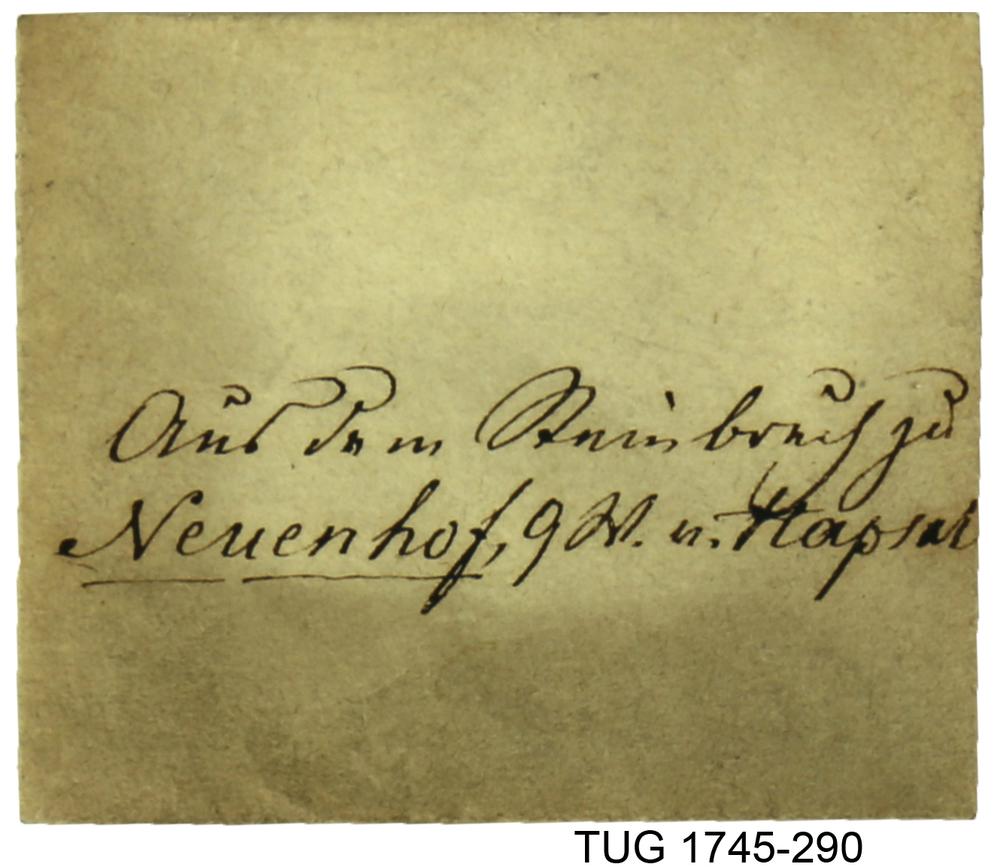 Aus dem Steinbruch zu
Neuenhof, 9 W. v. Hapsal
TUG 1745-290